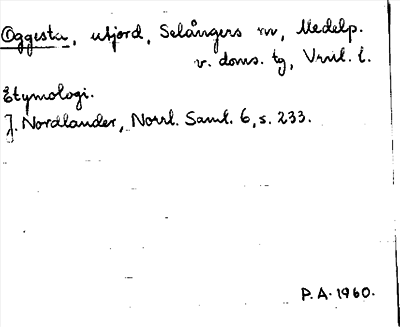 Oggesta, utjord, Selångers sn, Medelp.
v. doms. tg, Vnl. l.
Etymologi.
J. Nordlander, Norrl. Saml. 6, s. 233.
P.A. 1960.